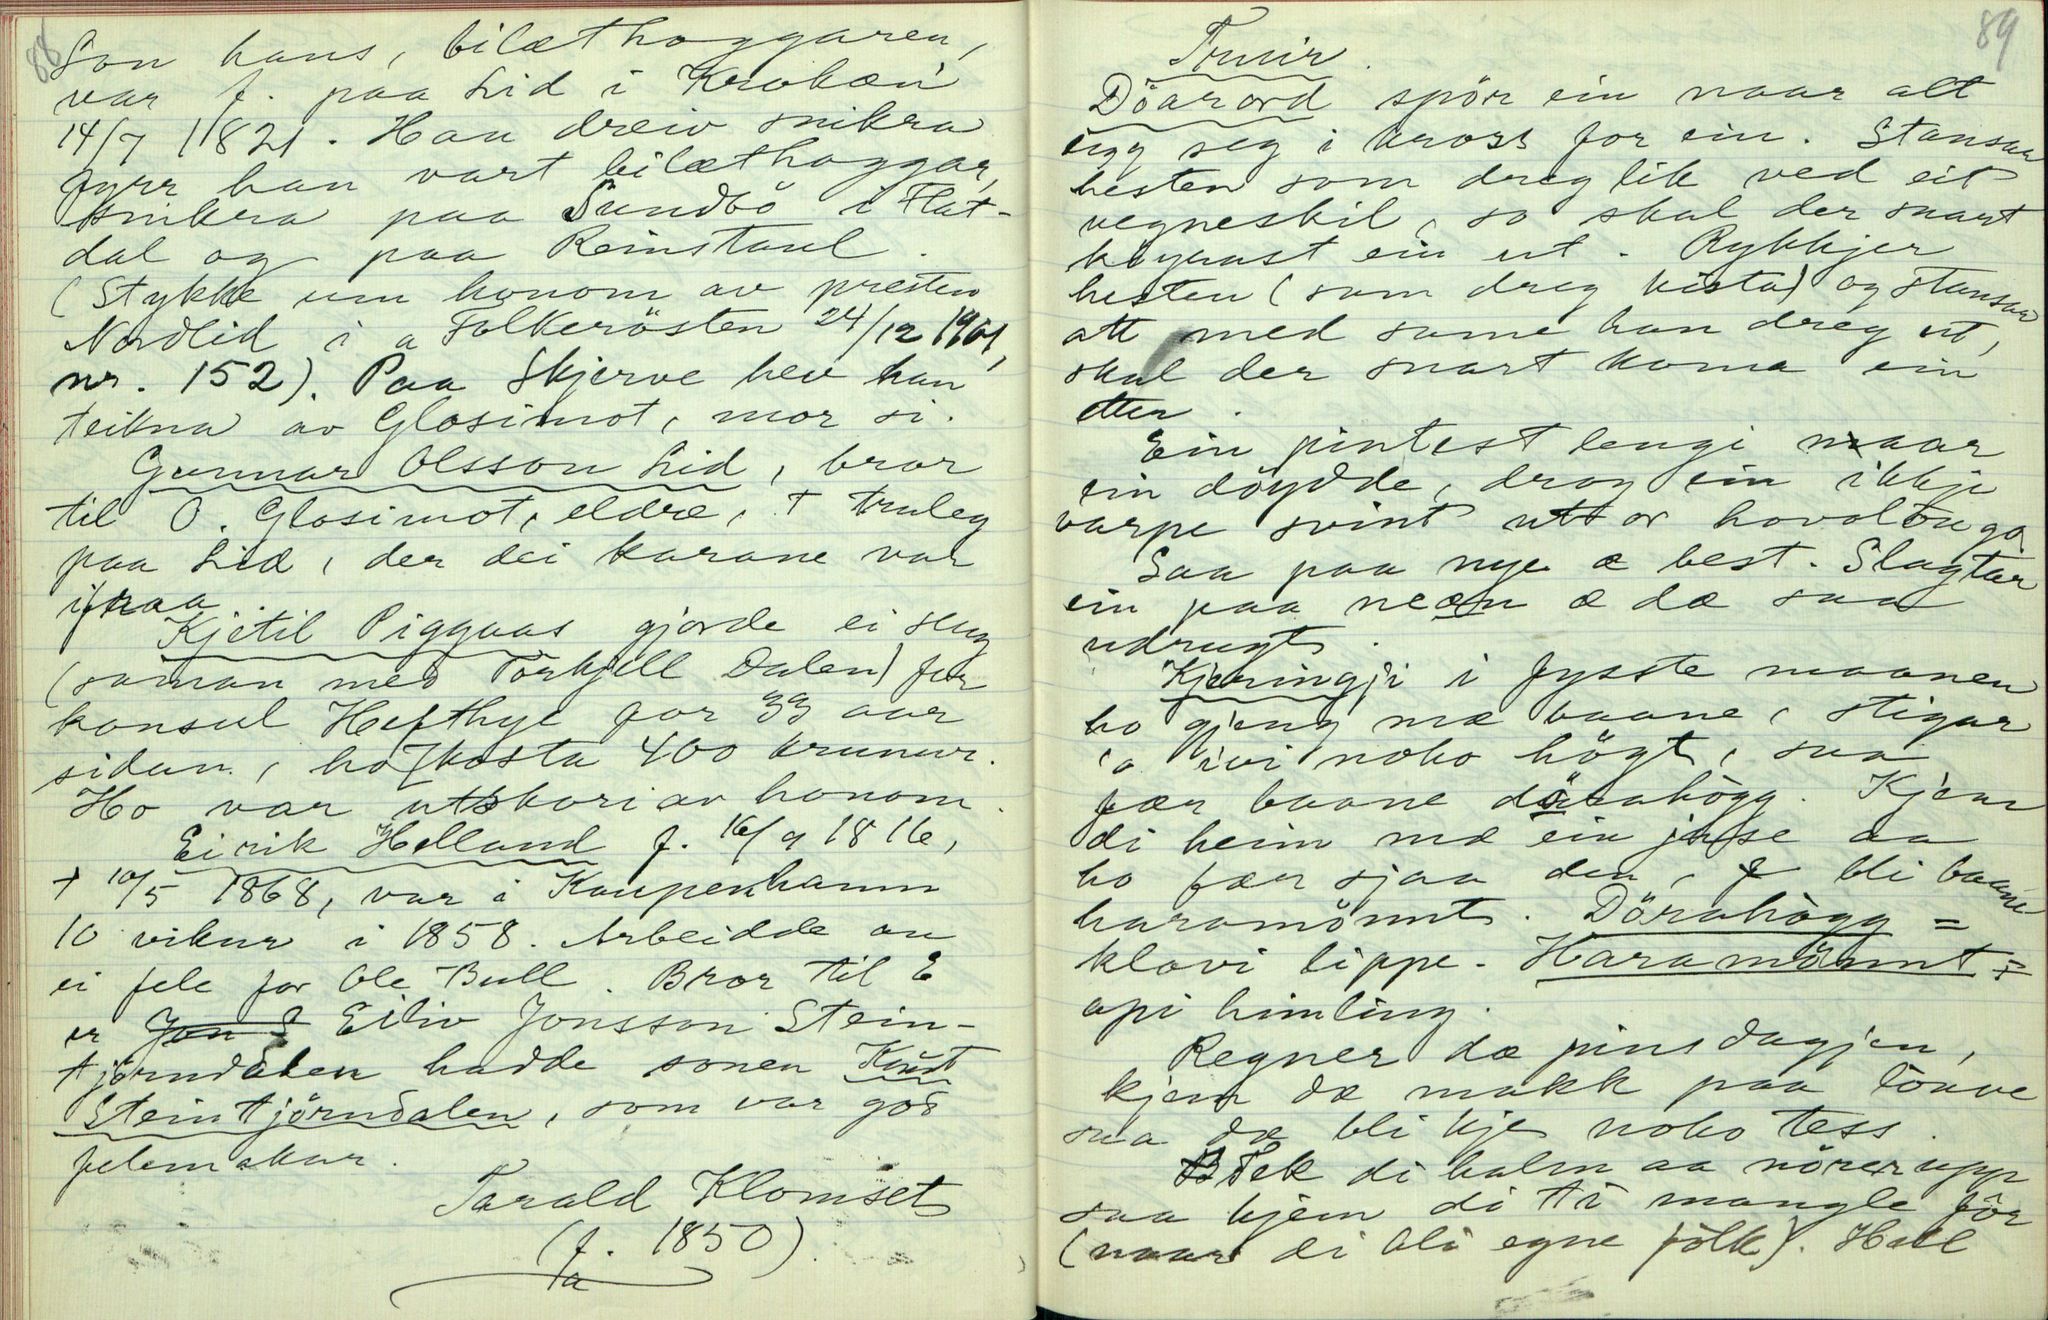 88
Son hans, bilæthoggaren,
var f. paa Lid i Krobæn
14/7 1821. Han dreiv snikra
fyrr han vart bilæthoggar,
snikra paa Sundbö i Flat-
dal og paa Reinstaul.
(Stykke um honom av presten
Nordlid i a Folkerösten 24/12 1901,
nr. 152). Paa Skjerve hev han
teikna av Glosimot, mor si.
Gunnar Olsson Lid, bror
til O. Glosimot, eldre, + truleg
paa Lid, der dei karane var
ifraa
Kjetil Piggaas gjorde ei slug
(saman med Torkjell Dalen) for
konsul Heftye for 33 aar
sidan, ho kosta 400 krunur.
Ho var utskori av honom.
Eirik Helland f. 16/9 1816,
+ 10/5 1868, var i Kaupenhamn
10 vikur i 1858. Arbeidde au
ei fele for Ole Bull. Bror til E
er Jon E Eiliv Jonsson Stein-
tjörndalen hadde sonen Knut
Steintjörndalen, som var god
felemakar.
Tarald Klomset
(f. 1850).
Ta
89
Truir.
Döarord spör ein naar alt
legg seg i kross for ein. Stansar
hesten som dreg lik ved eit
vegneskil, so skal der snart
köyrast ein ut. Rykkjer
hesten (som dreg kista) og stansar
att med same han dreg ut,
skal der snart koma ein
etter.
Ein pintest lengi naar
ein döydde, drog ein ikkje
varpe svint utor hovoldugo
Saa paa nye æ best. Slagtar
ein paa neæn æ dæ saa
udrugt.
Kjeringji i fysste maanen
ho gjeng mæ baane, stigar
'o ivi noko högt, saa
fær baane dörahögg. Kjem
di heim mæ ein jase aa
ho fær sjaa den, bli baane
haramönnt. Dörahögg =
klovi lippe. Haramönnt =
opi himling.
Regner dæ pinsdagjen,
kjem dæ makk paa lauve
saa dæ bli kje noko tess.
Tek di halm aa nörer upp
saa kjem di ti mangle fôr
(naar di bli egne folk). Hell